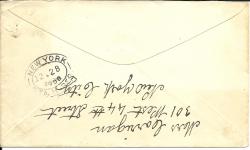 Mrs Corrigan
301 West 44th Street
New York City
NEW YORK
12-28